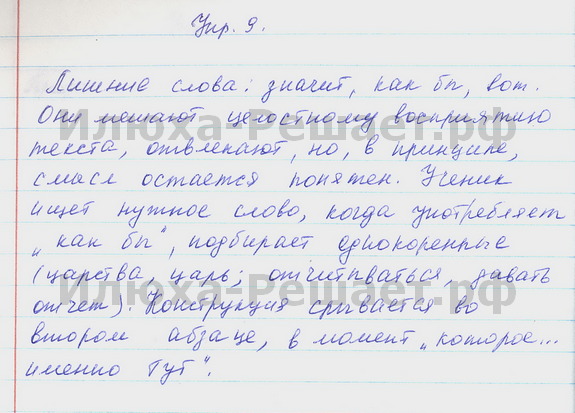 Упр. 9.
Лишние слова: значит, как бы, вот.
Они мешают целостному восприятию
Илюха-Решает.рф
текста, отвлекают, но, в принципе,
смысл остается понятен. Ученик
ищет нужное слово, когда употребляет
„как бы", подбирает однокоренные
(царства, царь; отчитываться, давать
Илюха-Решает.рф
отчет). Конструкция срывается во
втором абзаце, в момент „которое...
именно тут".